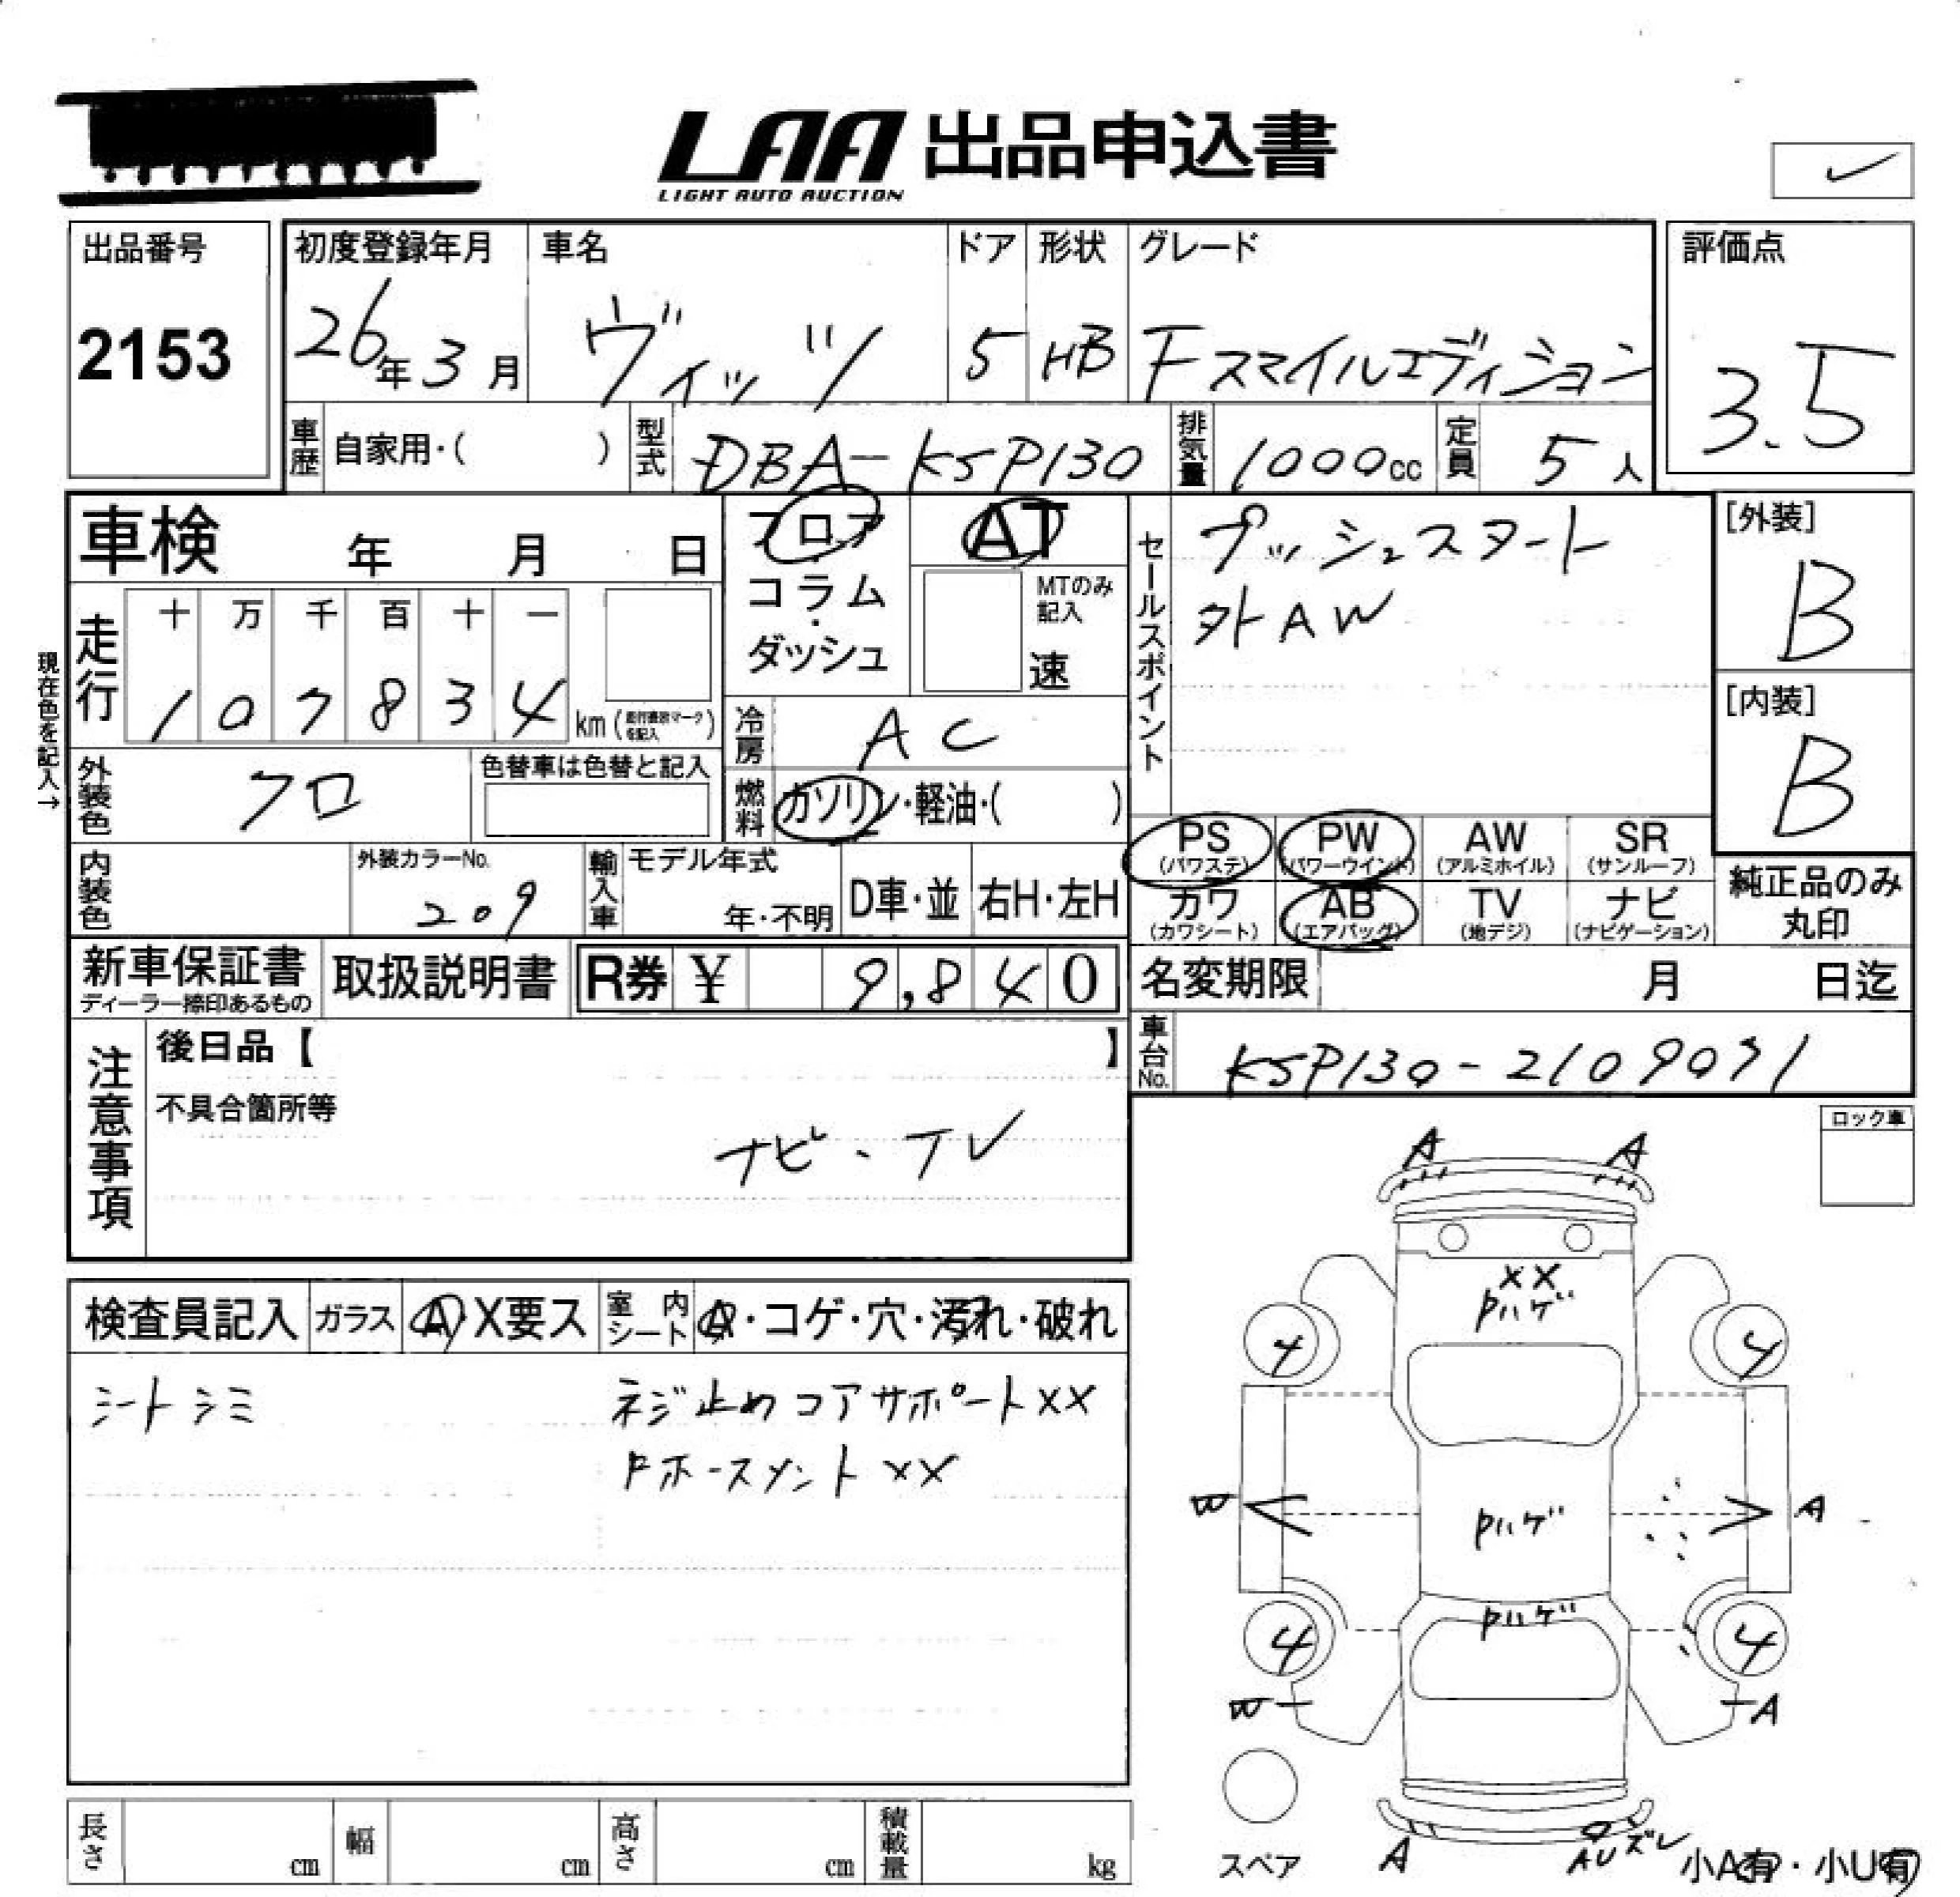 LAA 出品申込書
LIGHT AUTO AUCTION
出品番号
2153
初度登録年月
26年3月
車名
ヴィッツ
ドア
5
形状
HB
グレード
Fスマイルエディション
評価点
3.5
車歴 自家用・( )
型式 DBA-KSP130
排気量 1000cc
定員 5人
車検 年 月 日
フロア
コラム
・
ダッシュ
AT
MTのみ
記入
速
セールスポイント
プッシュスタート
外AW
[外装]
B
[内装]
B
現在色を記入→
走行
十 万 千 百 十 一
1 0 7 8 3 4 km(
を記入 )
冷房 AC
外装色 クロ
色替車は色替と記入
燃料 ガソリン・軽油・( )
PS
(パワステ)
PW
(パワーウインド)
AW
(アルミホイル)
SR
(サンルーフ)
カワ
(カワシート)
AB
(エアバッグ)
TV
(地デジ)
ナビ
(ナビゲーション)
純正品のみ
丸印
内装色
外装カラーNo.
209
輸入車
モデル年式
年・不明
D車・並
右H・左H
新車保証書
ディーラー捺印あるもの
取扱説明書
R券 ¥ 9,840
名変期限 月 日迄
車台No. KSP130-2109091
注意事項
後日品【 】
不具合箇所等
ナビ・TV
ロック車
検査員記入
ガラス A X要ス
室内シート A・コゲ・穴・汚れ・破れ
シートシミ
ネジ止め コアサポートXX
Fホースメント XX
A A
XX
Pハゲ
4 4
W A
Pハゲ
Pハゲ
4 4
W A
スペア
A
AUズレ
小A有・小U有
長さ cm
幅 cm
高さ cm
積載量 kg